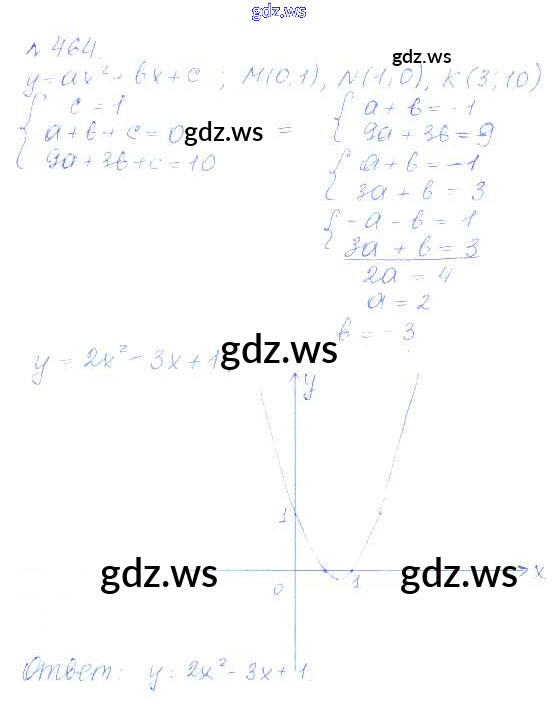 gdz.ws
№ 464.
y = ax² + bx + c ; M(0,1), N(1,0), K(3;10)
gdz.ws
{ c = 1
a + b + c = 0
9a + 3b + c = 10
gdz.ws
=
{ a + b = -1
9a + 3b = 9
{ a + b = -1
3a + b = 3
{ -a - b = 1
3a + b = 3
2a = 4
a = 2
b = -3
y = 2x² - 3x + 1
gdz.ws
y
1
0
1
x
gdz.ws
gdz.ws
Ответ: y = 2x² - 3x + 1.
gdz.ws